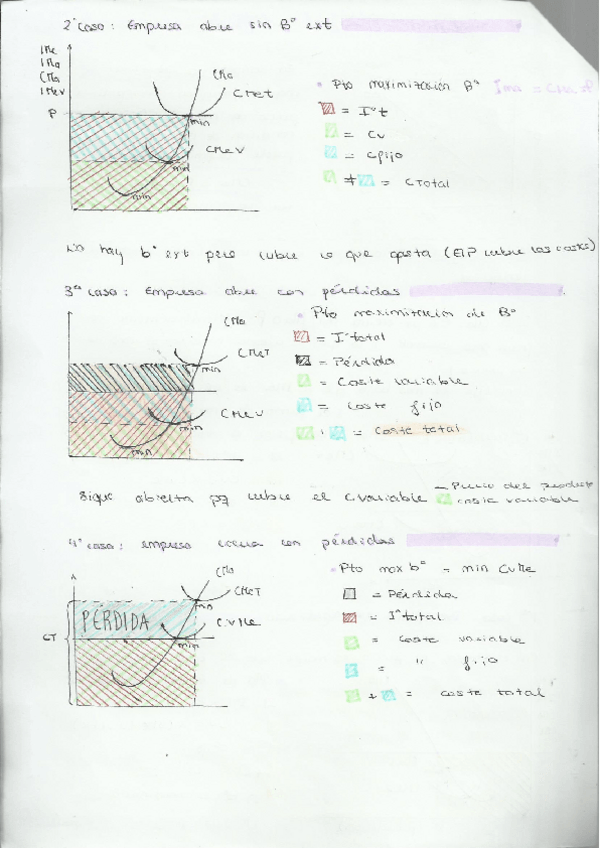 2º caso: Empresa abre sin Bº ext
IMe
IMa
CMa
IMeV
CMa
CMeT
P
min
CMeV
min
min
• Pto maximización Bº Ima = CMa = P
= Iºt
= Cv
= Cfijo
+ = CTotal
No hay bº ext pero cubre lo que gasta (El P cubre los costes)
3º caso: Empresa abre con pérdidas
CMa
CMeT
min
CMeV
min
min
• Pto maximización de Bº
= Iº total
= Pérdida
= Coste variable
= coste fijo
+ = Coste total
Sigue abierta pq cubre el Cvariable
— Precio del producto
coste variable
4º caso: empresa cierra con pérdidas
CMa
CMeT
min
CVMe
PÉRDIDA
min
CT
• Pto max bº = min CVMe
= Pérdida
= Iº total
= Coste variable
= " fijo
+ = coste total